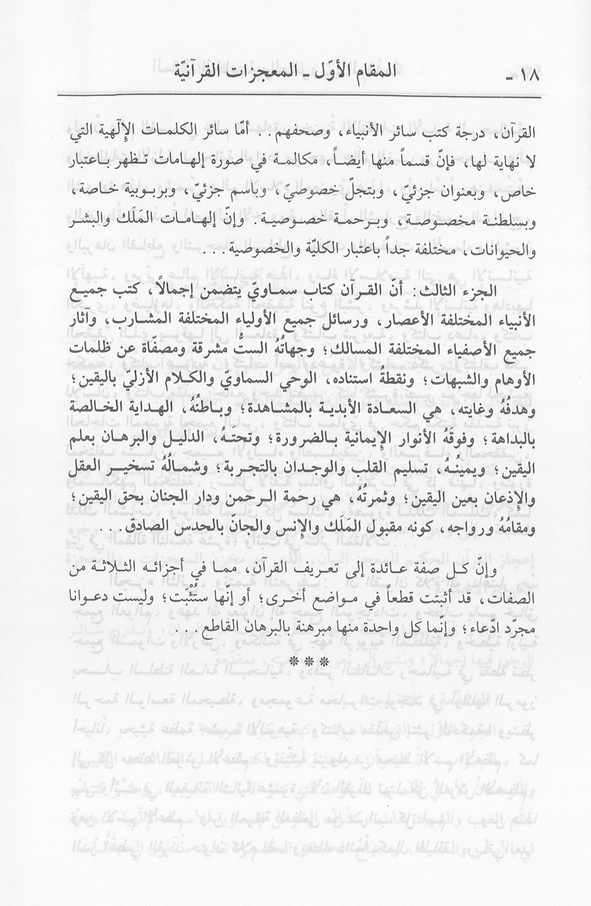 ١٨ - المقام الأوّل - المعجزات القرآنيّة
القرآن، درجة كتب سائر الأنبياء، وصحفهم.. أمّا سائر الكلمـات الإلٓهية التي
لا نهاية لها، فإنّ قسماً منها أيضـاً، مكالمـة في صورة إلهامـات تـظهر باعتبار
خاص، وبعنوان جزئيّ، وبتجلّ خصوصيّ، وباسم جزئيّ، وبربـوبية خـاصة،
وبسلطنـة مخصـوصـة، وبـرحمـة خصـوصيـة. وإنّ إلهامـات المَلَك والبشـر
والحيوانات، مختلفة جداً باعتبار الكليّة والخصوصية...
الجزء الثالث: أنّ القـرآن كتاب سمـاويّ يتضمن إجمـالاً، كتب جميـع
الأنبياء المختلفة الأعصار، ورسائل جميع الأولياء المختلفة المشارب، وآثار
جميع الأصفياء المختلفة المسالك؛ وجهاتُهُ الستُّ مشرقة ومصفّاة عن ظلمات
الأوهام والشبهات؛ ونقطةُ استناده، الوحي السماويّ والكلام الأزليّ باليقين؛
وهدفُهُ وغايته، هي السعادة الأبديـة بالمشاهدة؛ وبـاطنُهُ، الهدايـة الخالصـة
بالبداهة؛ وفوقَهُ الأنوار الإيمانية بـالضرورة؛ وتحتَـهُ، الدليـل والبرهـان بعلم
اليقين؛ ويمينُـهُ، تسليم القلب والوجـدان بالتجـربة؛ وشمـالُهُ تسخيـر العقل
والإذعان بعين اليقين؛ وثمرتُهُ، هي رحمة الـرحمن ودار الجنان بحق اليقين؛
ومقامُهُ ورواجه، كونه مقبول المَلَك والإنس والجانّ بالحدس الصادق...
وإنّ كـل صفة عـائدة إلى تعـريف القرآن، ممـا في أجزائـه الثـلاثـة من
الصفات، قد أثبتت قطعاً في مواضع أخرى؛ أو إنّها ستُثْبت؛ وليست دعوانا
مجرّد ادّعاء؛ وإنّما كل واحدة منها مبرهنة بالبرهان القاطع...
***